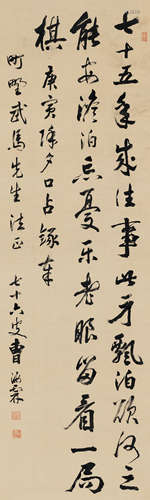 七十五年成往事此身飄泊欲何之
能安澹泊忘憂樂老眼留看一局
棋 庚寅除夕口占錄奉
町野武馬先生法正
七十六叟曹汝霖